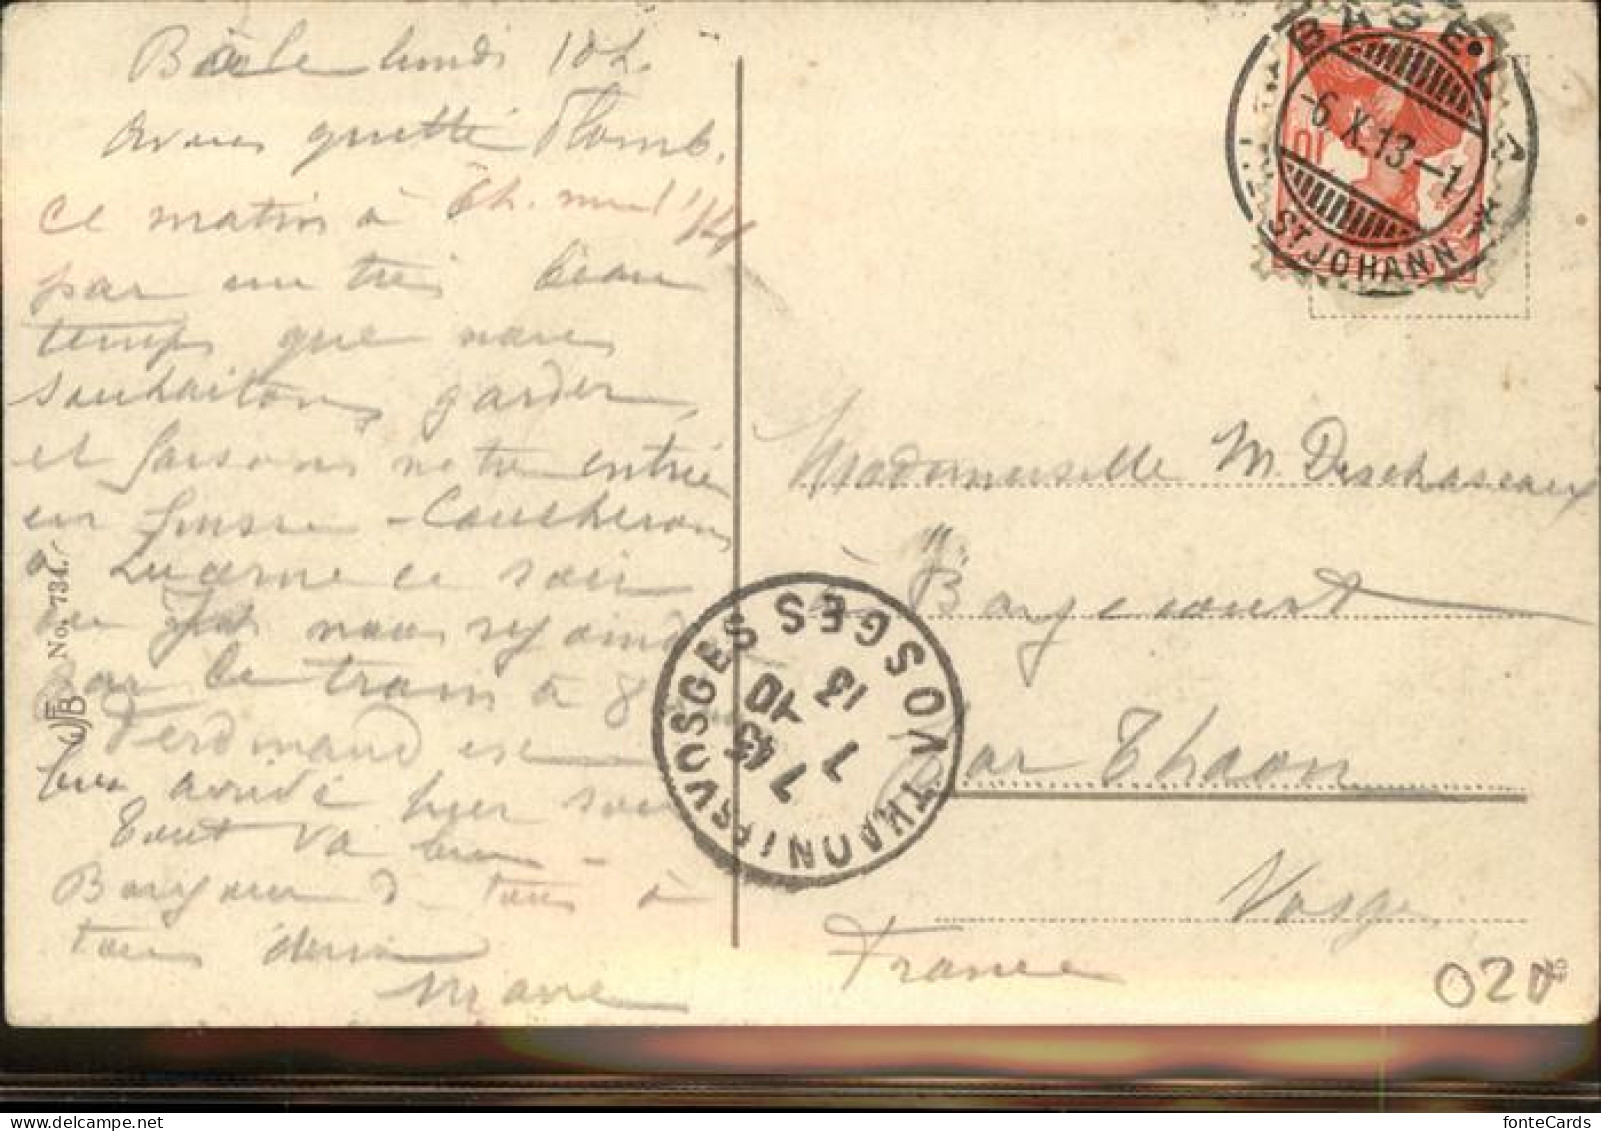 Bâle lundi 10 h.
Avons quitté Plomb.
ce matin à 6 h. moins 1/4
par un très beau
temps que nous
souhaitons garder,
et faisons notre entrée
en Suisse - Coucherons
à Luzerne ce soir
nous rejoindre
par le train à 8
Ferdinand est
bien arrivé hier soir
Tout va bien -
Bonjour à tous à
tous demi
Marie
No. 734.
BASEL 1
-6.X.13.-1
ST. JOHANN *
10
Mademoiselle M. Deschaseaux
à Bayecourt
par Thaon
Vosges
France
VOSGES
7 45
7 10
13
020
fonteCards